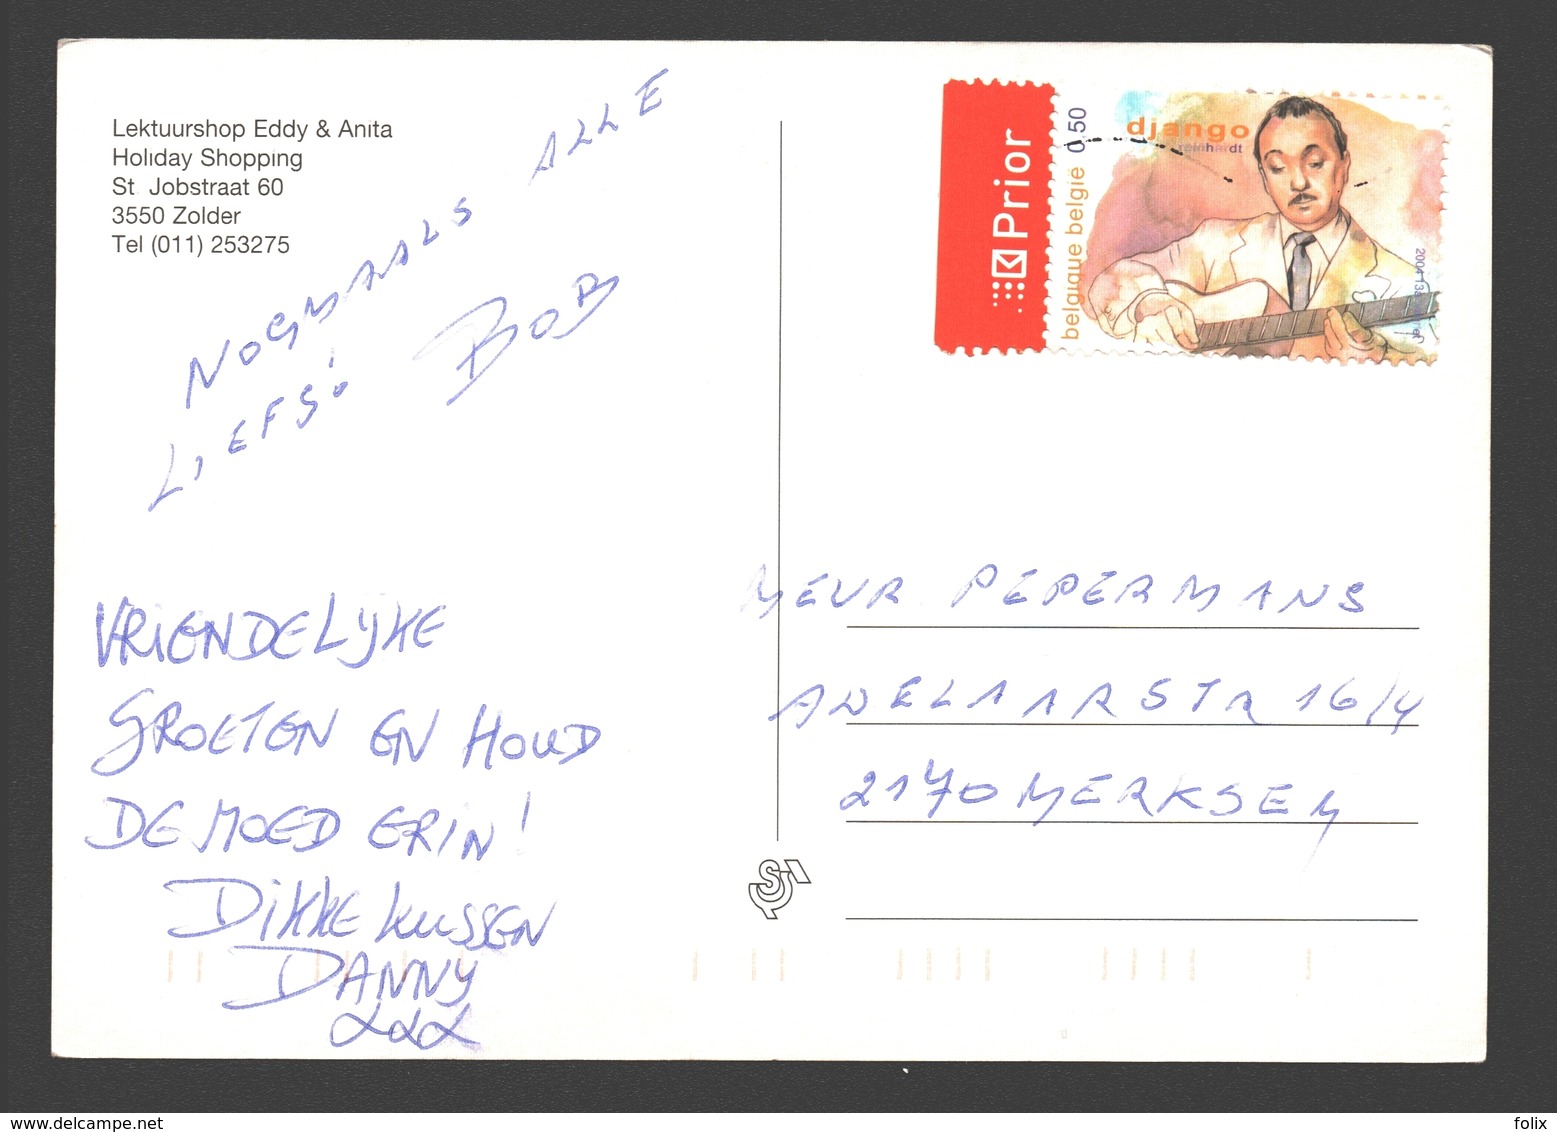 Lektuurshop Eddy & Anita
Holiday Shopping
St Jobstraat 60
3550 Zolder
Tel (011) 253275
NOGMAALS ALLE
LIEFS!
BOB
VRIENDELIJKE
GROETEN EN HOUD
DE MOED ERIN!
DIKKE KUSSEN
DANNY
XXX
Prior
belgique belgië 0,50
django
reinhardt
MEVR PEPERMANS
ADELAARSTR 16/4
2170 MERKSEM
www.delcampe.net
folix